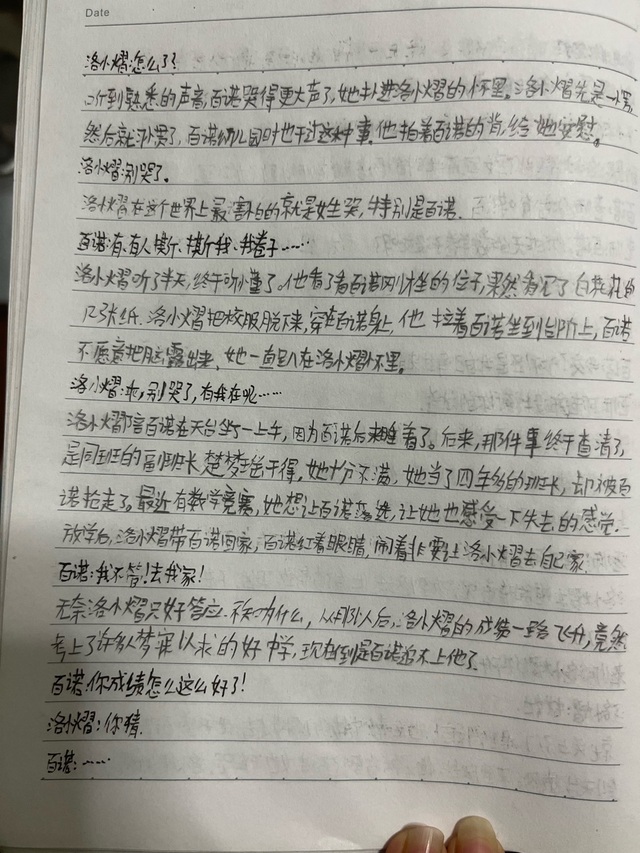 Date
洛小熠:怎么了?
听到熟悉的声音,百诺哭得更大声了,她扑进洛小熠的怀里。洛小熠先是一愣,
然后就习惯了,百诺幼儿园时也干过这种事。他拍着百诺的背,给她安慰。
洛小熠:别哭了。
洛小熠在这个世界上最害怕的就是女生哭,特别是百诺.
百诺:有、有人撕、撕我、我卷子……
洛小熠听了半天,终于听懂了。他看了看百诺刚才坐的位子,果然看见了白花花的
几张纸.洛小熠把校服脱下来,穿在百诺身上,他拉着百诺坐到台阶上,百诺
不愿意把脸露出来,她一直趴在洛小熠怀里。
洛小熠:乖,别哭了,有我在呢……
洛小熠陪百诺在天台坐了一上午,因为百诺后来睡着了。后来,那件事终于查清了,
是同班的副班长楚梦瑶干得,她十分不满,她当了四年多的班长,却被百
诺抢走了。最近有数学竞赛,她想让百诺落选,让她也感受一下失去的感觉.
放学后,洛小熠带百诺回家,百诺红着眼睛,闹着非要让洛小熠去自己家.
百诺:我不管!去我家!
无奈洛小熠只好答应.不知为什么,从那以后,洛小熠的成绩一路飞升,竟然
考上了许多人梦寐以求的好中学,现在倒是百诺追不上他了.
百诺:你成绩怎么这么好了!
洛小熠:你猜.
百诺:……